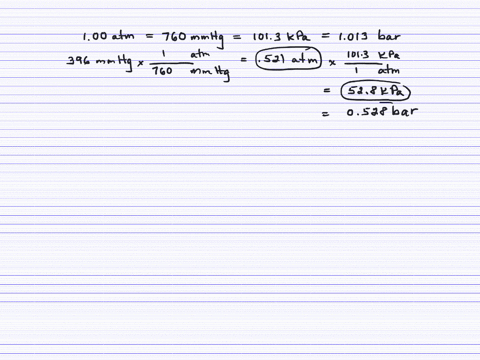 1.00 atm = 760 mmHg = 101.3 kPa = 1.013 bar
396 mmHg × 1 atm / 760 mmHg = .521 atm × 101.3 kPa / 1 atm
= 52.8 kPa
= 0.528 bar